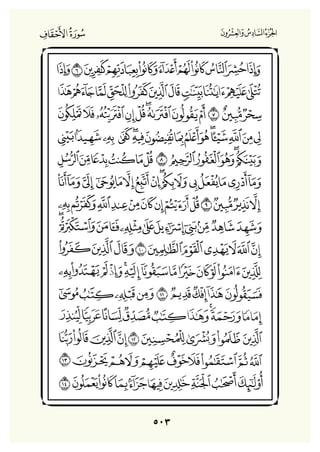 الجُزْءُ السَّادِسُ وَالعِشْرُونَ
سُورَةُ الأَحْقَافِ
وَإِذَا حُشِرَ ٱلنَّاسُ كَانُوا۟ لَهُمْ أَعْدَآءً وَكَانُوا۟ بِعِبَادَتِهِمْ كَـٰفِرِينَ ٦ وَإِذَا
تُتْلَىٰ عَلَيْهِمْ ءَايَـٰتُنَا بَيِّنَـٰتٍ قَالَ ٱلَّذِينَ كَفَرُوا۟ لِلْحَقِّ لَمَّا جَآءَهُمْ هَـٰذَا
سِحْرٌ مُّبِينٌ ٧ أَمْ يَقُولُونَ ٱفْتَرَىٰهُ ۖ قُلْ إِنِ ٱفْتَرَيْتُهُۥ فَلَا تَمْلِكُونَ
لِى مِنَ ٱللَّهِ شَيْـًٔا ۖ هُوَ أَعْلَمُ بِمَا تُفِيضُونَ فِيهِ ۖ كَفَىٰ بِهِۦ شَهِيدًۢا بَيْنِى
وَبَيْنَكُمْ ۖ وَهُوَ ٱلْغَفُورُ ٱلرَّحِيمُ ٨ قُلْ مَا كُنتُ بِدْعًا مِّنَ ٱلرُّسُلِ
وَمَآ أَدْرِى مَا يُفْعَلُ بِى وَلَا بِكُمْ ۖ إِنْ أَتَّبِعُ إِلَّا مَا يُوحَىٰٓ إِلَىَّ وَمَآ أَنَا۠
إِلَّا نَذِيرٌ مُّبِينٌ ٩ قُلْ أَرَءَيْتُمْ إِن كَانَ مِنْ عِندِ ٱللَّهِ وَكَفَرْتُم بِهِۦ
وَشَهِدَ شَاهِدٌ مِّنۢ بَنِىٓ إِسْرَٰٓءِيلَ عَلَىٰ مِثْلِهِۦ فَـَٔامَنَ وَٱسْتَكْبَرْتُمْ ۖ
إِنَّ ٱللَّهَ لَا يَهْدِى ٱلْقَوْمَ ٱلظَّـٰلِمِينَ ١٠ وَقَالَ ٱلَّذِينَ كَفَرُوا۟
لِلَّذِينَ ءَامَنُوا۟ لَوْ كَانَ خَيْرًا مَّا سَبَقُونَآ إِلَيْهِ ۚ وَإِذْ لَمْ يَهْتَدُوا۟ بِهِۦ
فَسَيَقُولُونَ هَـٰذَآ إِفْكٌ قَدِيمٌ ١١ وَمِن قَبْلِهِۦ كِتَـٰبُ مُوسَىٰٓ
إِمَامًا وَرَحْمَةً ۚ وَهَـٰذَا كِتَـٰبٌ مُّصَدِّقٌ لِّسَانًا عَرَبِيًّا لِّيُنذِرَ
ٱلَّذِينَ ظَلَمُوا۟ وَبُشْرَىٰ لِلْمُحْسِنِينَ ١٢ إِنَّ ٱلَّذِينَ قَالُوا۟ رَبُّنَا
ٱللَّهُ ثُمَّ ٱسْتَقَـٰمُوا۟ فَلَا خَوْفٌ عَلَيْهِمْ وَلَا هُمْ يَحْزَنُونَ ١٣
أُو۟لَـٰٓئِكَ أَصْحَـٰبُ ٱلْجَنَّةِ خَـٰلِدِينَ فِيهَا جَزَآءًۢ بِمَا كَانُوا۟ يَعْمَلُونَ ١٤
٥٠٣